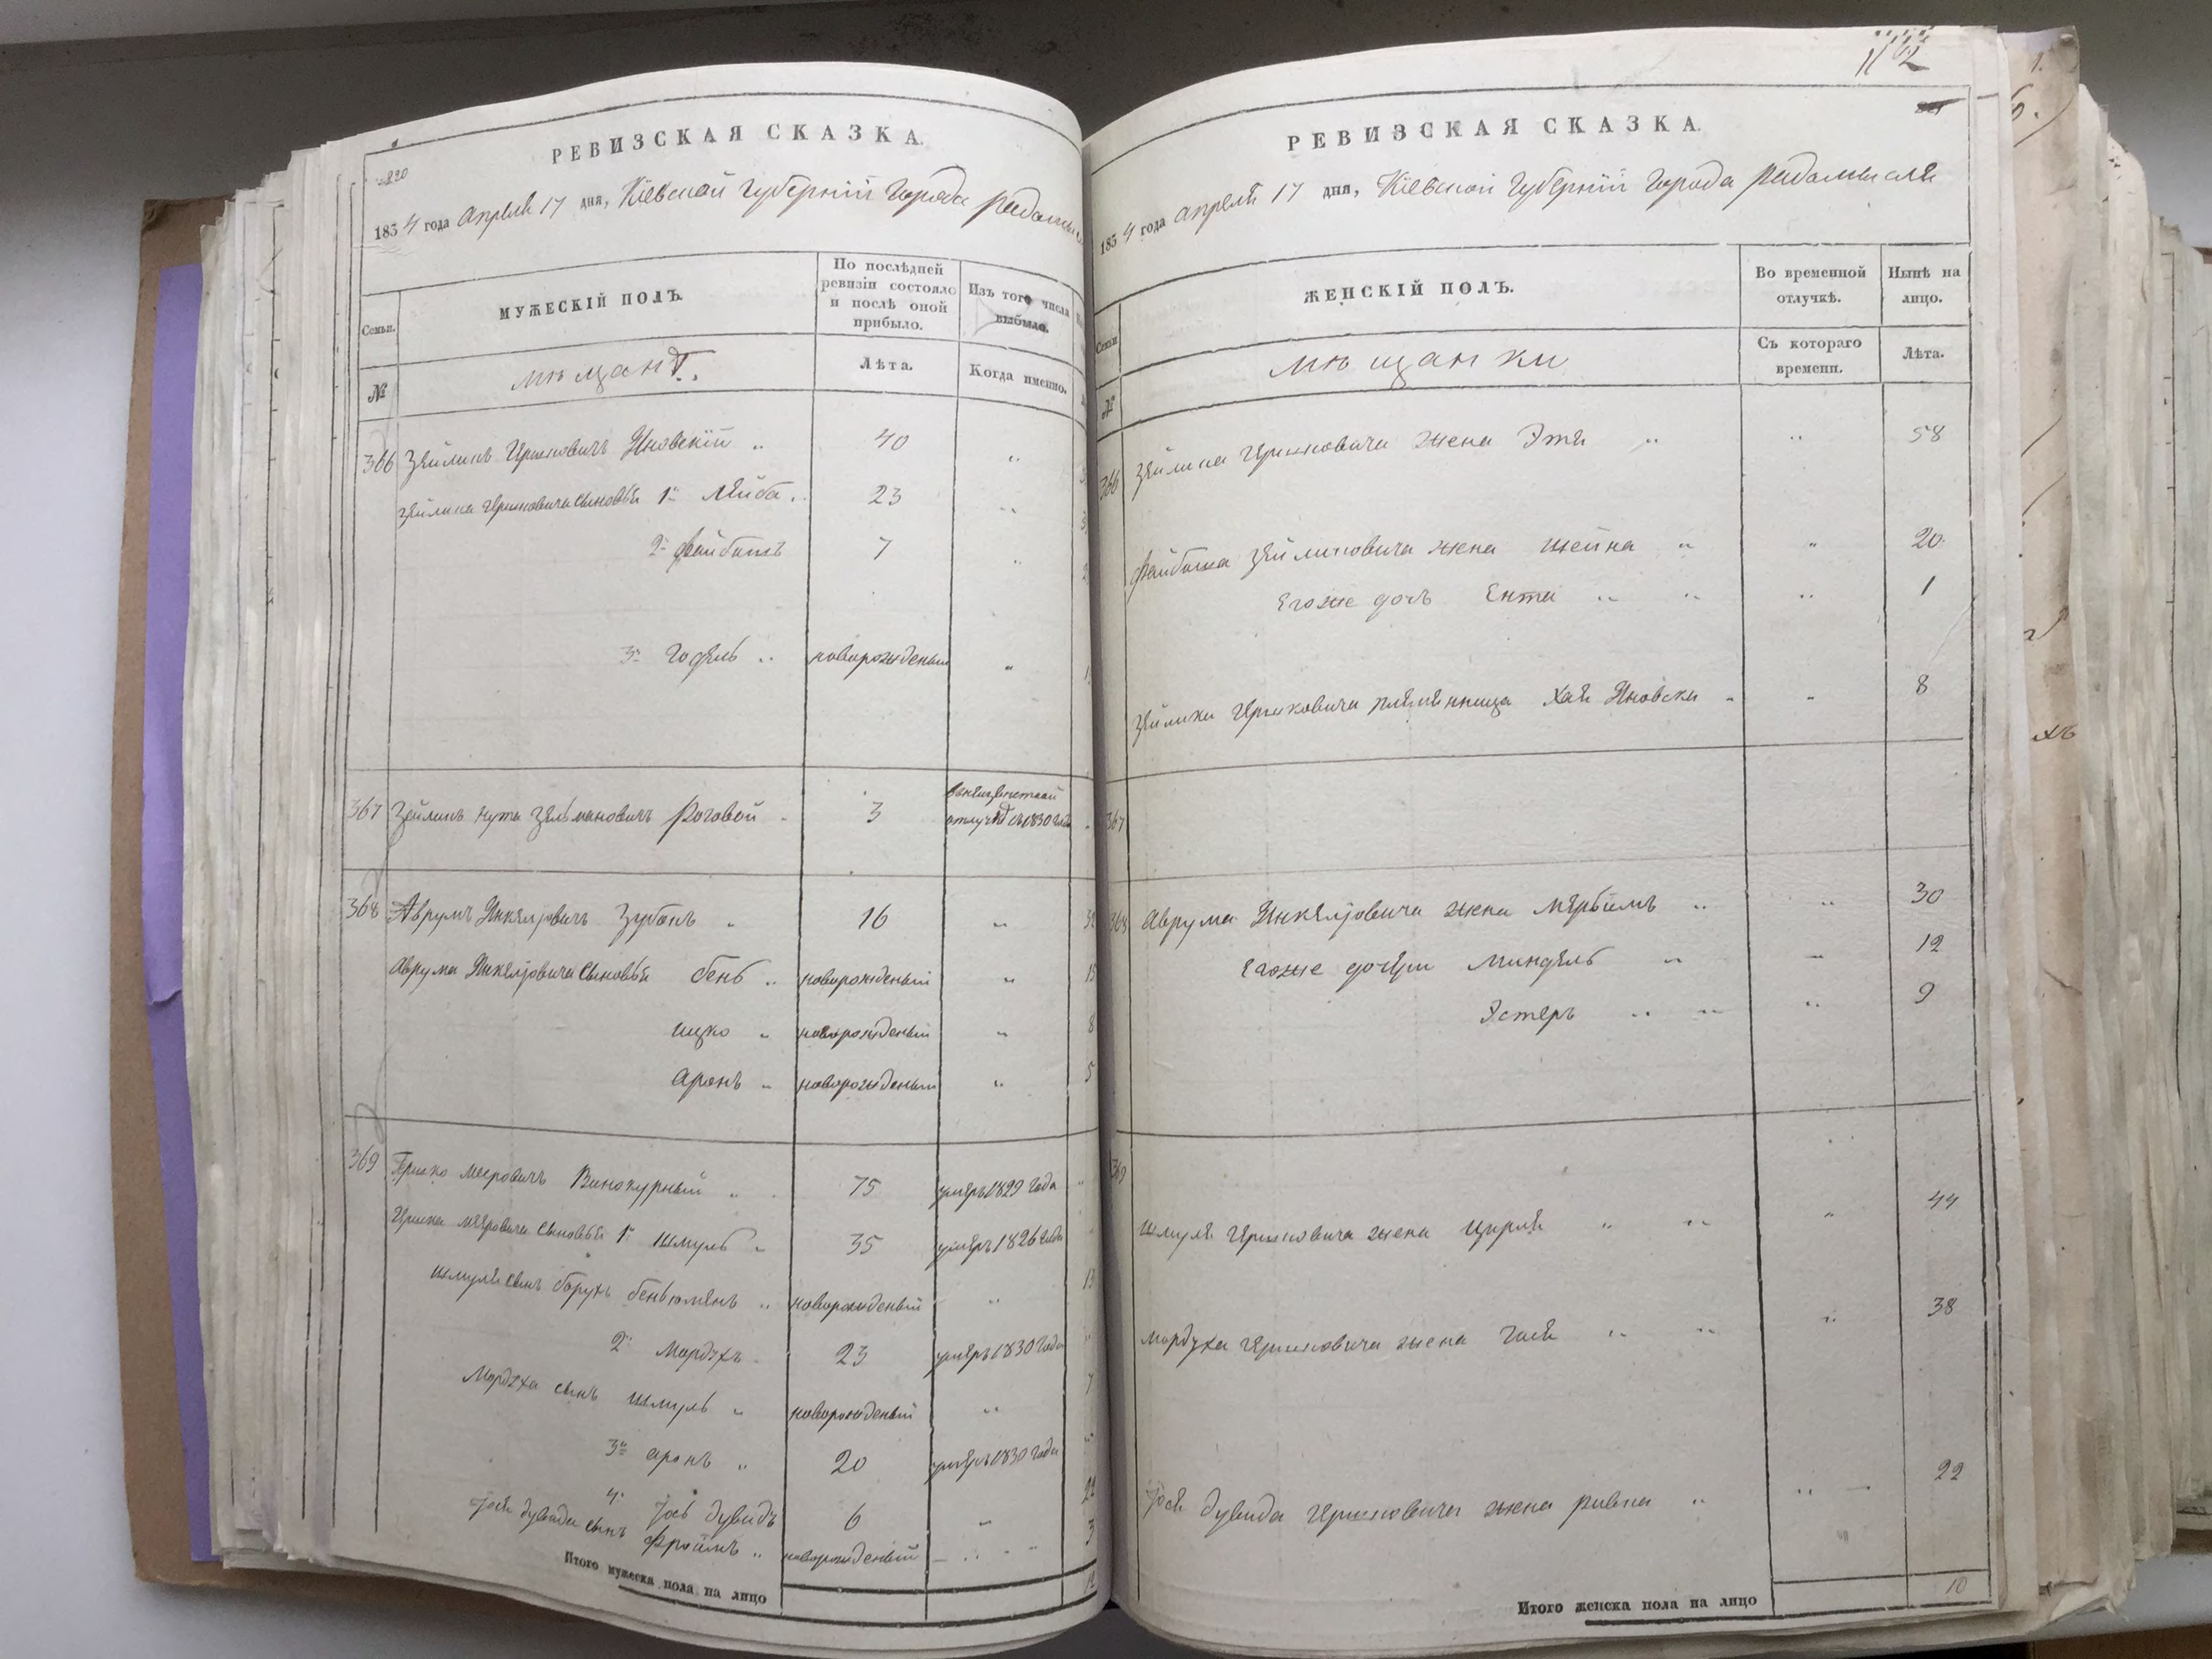 220
РЕВИЗСКАЯ СКАЗКА.
1834 года апреля 17 дня, Кіевской Губерніи Города Радомы
Семьи.
МУЖЕСКІЙ ПОЛЪ.
По послѣдней ревизіи состояло и послѣ оной прибыло.
Изъ того числа выбыло.
№
мѣщанъ
Лѣта.
Когда именно.
366 Зейликъ Гершковичъ Яновскій 40
Зейлика Гершковича сыновья 1й Лейба 23
2й Файбишъ 7
3й Годель новорожденый
367 Зейликъ Нута Зельмановичъ Роговой 3 в неизвестной отлучкѣ съ 1830 года
368 Аврумъ Янкеліовичъ Зубокъ 16 32
Аврума Янкелiовича сыновья бень новорожденый 15
ицко новорожденый 8
аронъ новорожденый 5
369 Гершко Мееровичъ Винокурный 75 умеръ 1829 года
Гершка Меровича сыновья 1й Шмуль 35 умеръ 1826 года
Шмуля сынъ борухъ беньюменъ новорожденый 13
2й Мордухъ 23 умеръ 1830 года
Мордуха сынъ Шмуль новорожденый 7
3й аронъ 20 умеръ 1830 года
4й Іось дувидъ 6 22
Іося дувида сынъ Фроимъ новорожденый 3
Итого мужеска пола на лицо 12
РЕВИЗСКАЯ СКАЗКА.
1834 года апреля 17 дня, Кіевской Губерніи Города Радомысля
Семьи
ЖЕНСКІЙ ПОЛЪ.
Во временной отлучкѣ.
Нынѣ на лицо.
№
мѣщанки
Съ котораго времени.
Лѣта.
366 Зейлика Гершковича жена Этя 58
Файбиша Зейликовича жена Шейна 20
Егоже дочь Ентя 1
Зейлика Гершковича племянница Хая Яновска 8
367
368 Аврума Янкелiовича жена Мербимъ 30
Егоже дочери Миндель 12
Эстеръ 9
369
Шмуля Гершковича жена Цирля 44
Мордуха Гершковича жена Гися 38
Іося дувида Гершковича жена ривка 22
Итого женска пола на лицо 10